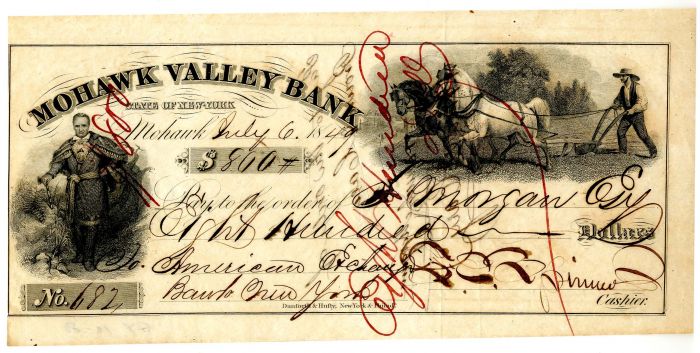 MOHAWK VALLEY BANK
STATE OF NEW-YORK
Mohawk July 6 1849
$800
Pay to the order of H Morgan Esq
Eight Hundred Dollars
To American Exchange
Bank New York
No. 682
Cashier.
Danforth & Hufty, New York &
Eight Hundred